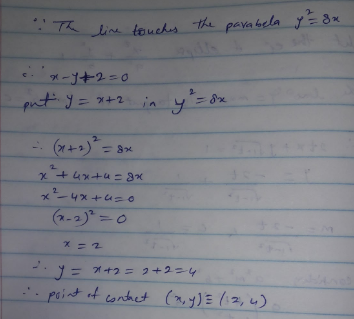 ∵ Th line touches the parabola y² = 8x
∴ x-y+2=0
put y = x+2 in y² = 8x
∴ (x+2)² = 8x
x²+4x+4=8x
x²-4x+4=0
(x-2)² = 0
x = 2
∴ y = x+2 = 2+2 = 4
∴ point of contact (x,y) ≡ (2, 4)